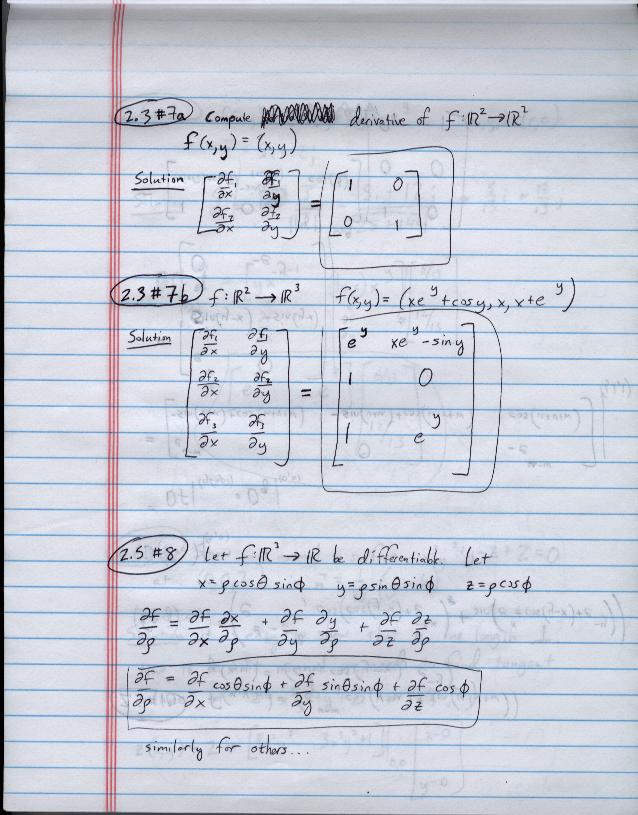 2.3 #7a Compute derivative of f: ℝ² → ℝ²
f(x,y) = (x,y)
Solution [ ∂f₁/∂x ∂f₁/∂y ; ∂f₂/∂x ∂f₂/∂y ] = [ 1 0 ; 0 1 ]
2.3 #7b f: ℝ² → ℝ³ f(x,y) = (xe^y + cosy, x, x+e^y)
Solution [ ∂f₁/∂x ∂f₁/∂y ; ∂f₂/∂x ∂f₂/∂y ; ∂f₃/∂x ∂f₃/∂y ] = [ e^y xe^y - siny ; 1 0 ; 1 e^y ]
2.5 #8 Let f: ℝ³ → ℝ be differentiable. Let
x = ρcosθ sinφ y = ρsinθsinφ z = ρcosφ
∂f/∂ρ = ∂f/∂x ∂x/∂ρ + ∂f/∂y ∂y/∂ρ + ∂f/∂z ∂z/∂ρ
∂f/∂ρ = ∂f/∂x cosθsinφ + ∂f/∂y sinθsinφ + ∂f/∂z cosφ
similarly for others...